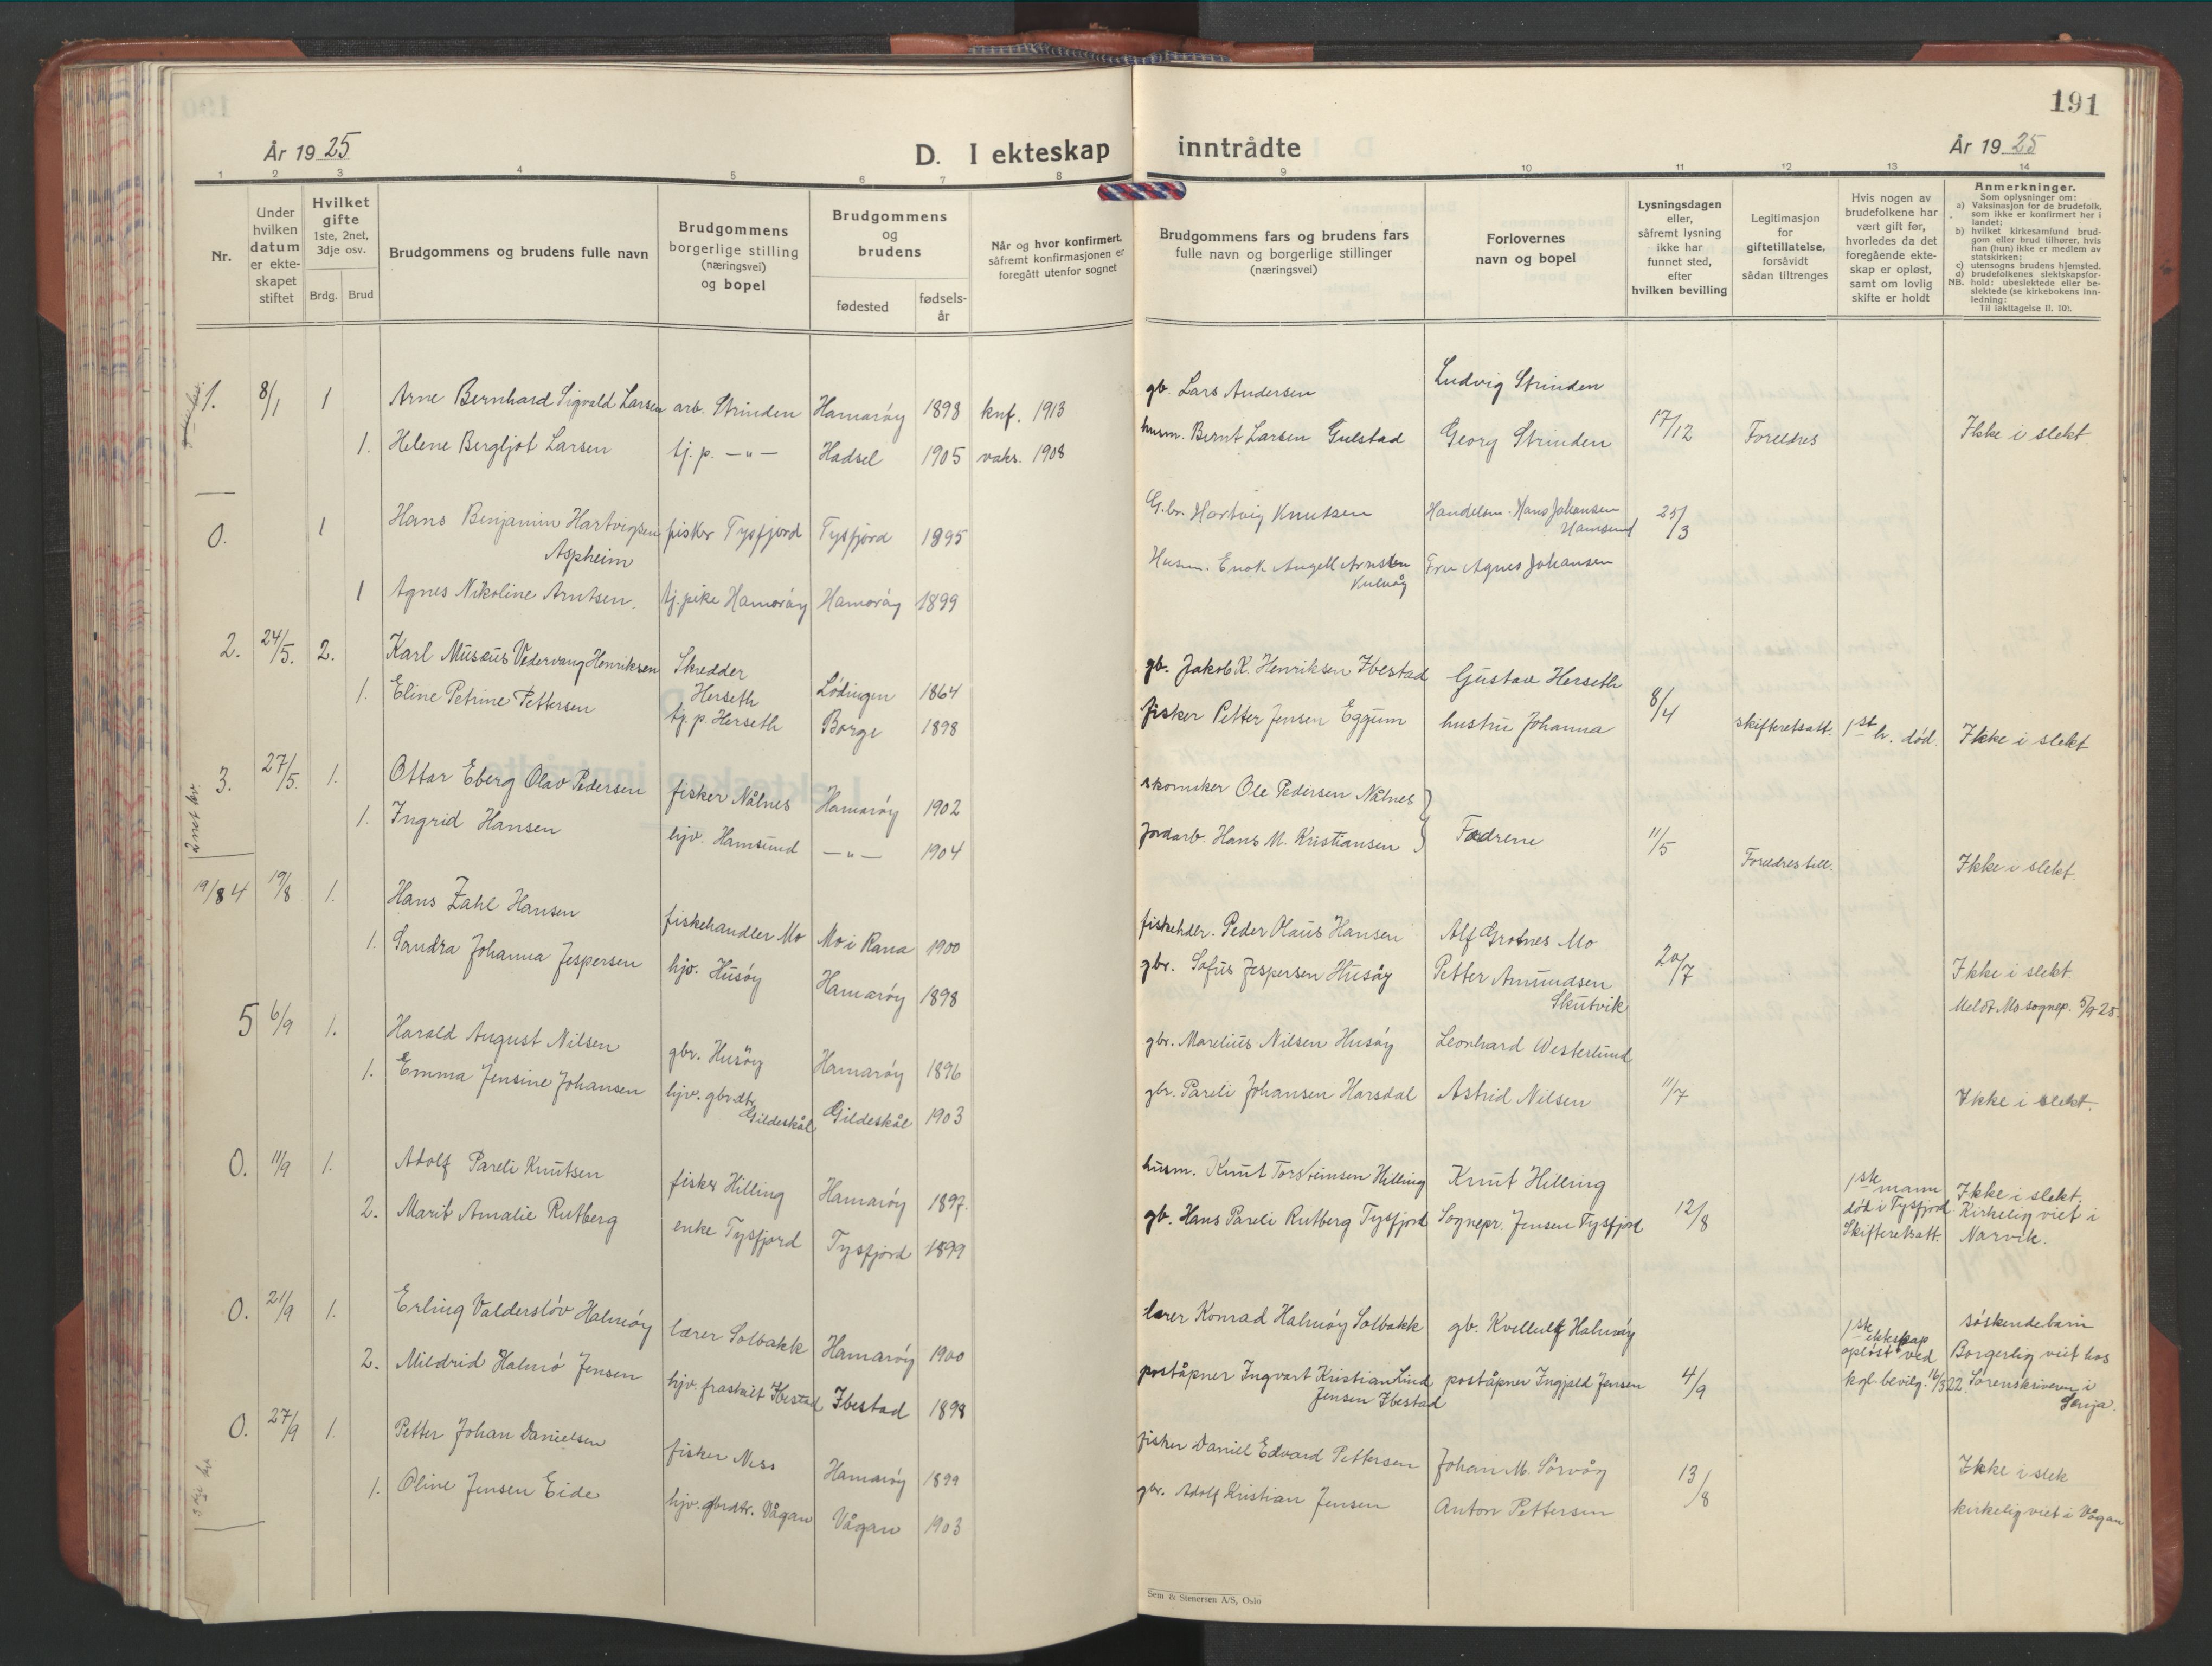 191
År 1925
D. I ekteskap inntrådte
År 1925
1 2 3 4 5 6 7 8 9 10 11 12 13 14
Nr.
Under hvilken datum er ekteskapet stiftet
Hvilket gifte 1ste, 2net, 3dje osv.
Brdg. Brud
Brudgommens og brudens fulle navn
Brudgommens borgerlige stilling (næringsvei) og bopel
Brudgommens og brudens
fødested
fødsels-år
Når og hvor konfirmert, såfremt konfirmasjonen er foregått utenfor sognet
Brudgommens fars og brudens fars fulle navn og borgerlige stillinger (næringsvei)
Forlovernes navn og bopel
Lysningsdagen eller, såfremt lysning ikke har funnet sted, efter hvilken bevilling
Legitimasjon for giftetillatelse, forsåvidt sådan tiltrenges
Hvis nogen av brudefolkene har vært gift før, hvorledes da det foregående ekteskap er opløst, samt om lovlig skifte er holdt
Anmerkninger.
Som oplysninger om:
a) Vaksinasjon for de brudefolk, som ikke er konfirmert her i landet;
b) hvilket kirkesamfund brudgom eller brud tilhører, hvis han (hun) ikke er medlem av statskirken;
c) utensogns brudens hjemsted.
d) brudefolkenes slektskapsforhold: ubeslektede eller beslektede (se kirkebokens innledning:
NB. Til iakttagelse II. 10).
1. 8/1 1 Arne Bernhard Sigvald Larsen arb. Strinden Hamarøy 1898 knf. 1913 gb. Lars Andersen Ludvig Strinden
1. Helene Bergljot Larsen tj. p. —"— Hadsel 1905 vaks. 1908 husm. Bernt Larsen Gulstad Georg Strinden 17/12 Foreldres Ikke i slekt
0. 1 Hans Benjamin Hartvigsen Aspheim fisker Tysfjord Tysfjord 1895 G.br. Hartvig Knutsen Handelsm. Hans Johansen Hamsund 25/3
1 Agnes Nikoline Arntsen. tj. pike Hamarøy Hamarøy 1899 Husm. Enok Angell Arntsen Fru Agnes Johansen
2. 24/5. 2. Karl Musæus Vedervang Henriksen Skredder Herseth Lødingen 1864 gb. Jakob K. Henriksen Ibestad Gustav Herseth
1. Eline Petrine Pettersen tj. p. Herseth Borge 1898 fisker Petter Jensen Eggum hustru Johanna 8/4 skifteretsatt. 1st h. død. Ikke i slekt
2net kv.
3. 27/5. 1. Ottar Eberg Olav Pedersen fisker Nålnes Hamarøy 1902 skomaker Ole Pedersen Nålnes
1. Ingrid Hansen hjv. Hamsund —"— 1904 Jordarb. Hans M. Kristiansen Fædrene 11/5 Foreldres till. Ikke i slekt.
19/8 4 19/8 1. Hans Zahl Hansen fiskehandler Mo Mo i Rana 1900 fiskehdlr. Peder Olaus Hansen Alf Grotnes Mo
1. Sandra Johanna Jespersen hjv. Husøy Hamarøy 1898 gbr. Sofus Jespersen Husøy Petter Amundsen Skutvik 20/7 Ikke i slekt
Meldt Mo sognep. 5/9 25.
5 6/9 1. Harald August Nilsen gbr. Husøy Hamarøy 1896 gbr. Marelius Nilsen Husøy Leonhard Westerlund
1. Emma Jensine Johansen hjv. gbr.dtr. Gildeskål Gildeskål 1903 gbr. Pareli Johansen Harsdal Astrid Nilsen 11/7 Ikke i slekt.
0. 11/9 1. Adolf Pareli Knutsen fisker Hilling Hamarøy 1897. husm. Knut Torsteinsen Hilling Knut Hilling
2. Marit Amalie Rutberg enke Tysfjord Tysfjord 1899 gb. Hans Pareli Rutberg Tysfjord Sognepr. Jensen Tysfjord 12/8 1ste mann død i Tysfjord. Skifteretsatt. Ikke i slekt. Kirkelig viet i Narvik.
0. 21/9 1. Erling Valdersløv Halmøy lærer Solbakk Hamarøy 1900 lærer Konrad Halmøy Solbakk gb. Kvellulf Halmøy
2. Mildrid Halmø Jensen hjv. fraskilt Ibestad Ibestad 1898 poståpner Ingvart Kristian Lind Jensen Ibestad poståpner Ingjald Jensen 4/9 1ste ekteskap opløst ved kgl. bevilg. 16/3 22. søskendebarn Borgerlig viet hos Sorenskriveren i Senja.
0. 27/9 1. Petter Johan Danielsen fisker Ness Hamarøy 1899 fisker Daniel Edvard Pettersen Johan M. Sørvåg
1. Oline Jensen Eide hjv. gbrdtr. Vågan Vågan 1903 gbr. Adolf Kristian Jensen Anton Pettersen 13/8 Ikke i slek
kirkelig viet i Vågan
Sem & Stenersen A/S, Oslo